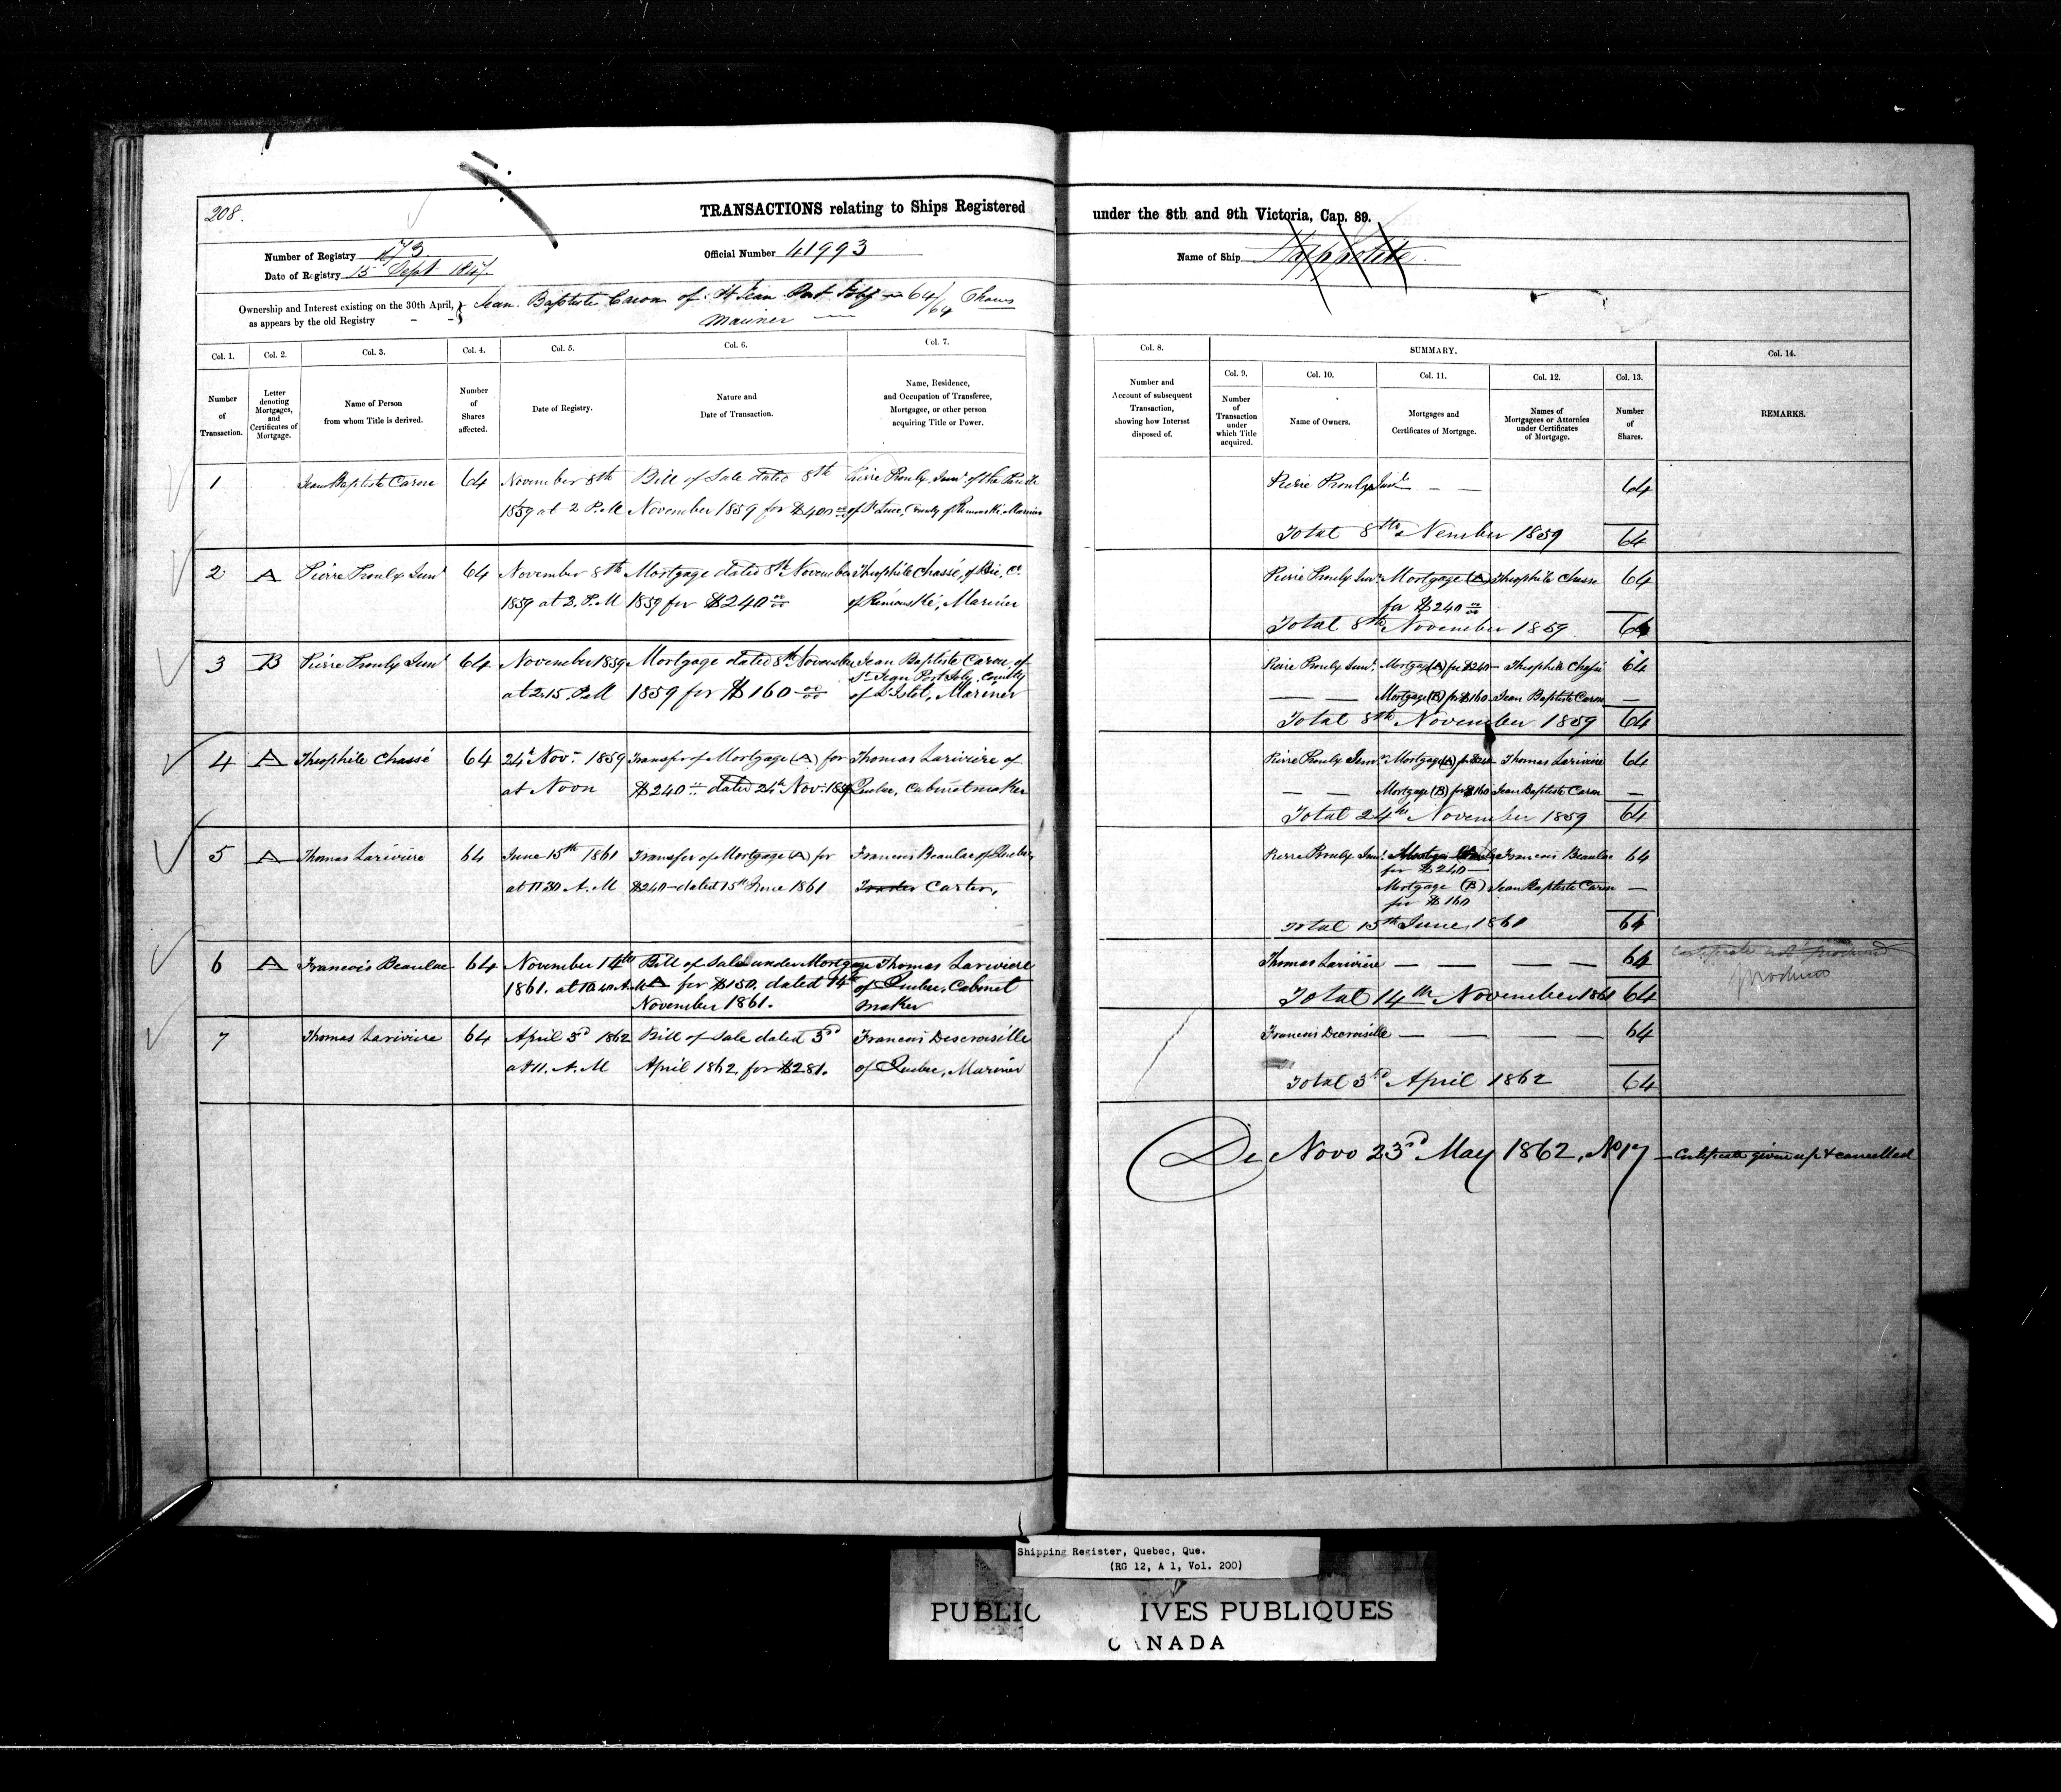 208.
TRANSACTIONS relating to Ships Registered under the 8th and 9th Victoria, Cap. 89.
Number of Registry 173
Official Number 41993
Name of Ship Hippolite.
Date of Registry 15 Sept
Ownership and Interest existing on the 30th April,
as appears by the old Registry
Jean Baptiste Caron of St Jean Port Joly 64/64 Shares
Mariner
Col. 1.
Col. 2.
Col. 3.
Col. 4.
Col. 5.
Col. 6.
Col. 7.
Col. 8.
SUMMARY.
Col. 9.
Col. 10.
Col. 11.
Col. 12.
Col. 13.
Col. 14.
Number
of
Transaction.
Letter
denoting
Mortgages,
and
Certificates of
Mortgage.
Name of Person
from whom Title is derived.
Number
of
Shares
affected.
Date of Registry.
Nature and
Date of Transaction.
Name, Residence,
and Occupation of Transferee,
Mortgagee, or other person
acquiring Title or Power.
Number and
Account of subsequent
Transaction,
showing how Interest
disposed of.
Number
of
Transaction
under
which Title
acquired.
Name of Owners.
Mortgages and
Certificates of Mortgage.
Names of
Mortgagees or Attornies
under Certificates
of Mortgage.
Number
of
Shares.
REMARKS.
1 Jean Baptiste Caron 64 November 8th Bill of Sale dated 8th Pierre Proulx Junr. of the Parish
1859 at 2 P.M November 1859 for $400 00/00 of St Luce, County of Rimouski, Mariner
Pierre Proulx Junr — — 64
Total 8th Nember 1859 64
2 A Pierre Proulx Junr 64 November 8th Mortgage dated 8th November Theophile Chassé, of Bic, Co.
1859 at 2. P.M 1859 for $240 00/00 of Rimouski, Mariner
Pierre Proulx Junr. Mortgage (A) Theophile Chasse 64
for $240 00/00
Total 8th November 1859 64
3 B Pierre Proulx Junr 64 November 1859 Mortgage dated 8th November Jean Baptiste Caron, of
St Jean Port Joly, County
at 2.15. P.M 1859 for $160 00/00 of L'Islet, Mariner
Pierre Proulx Junr. Mortgage (A) for $240 — Theophile Chassé 64
— — Mortgage (B) for $160 Jean Baptiste Caron —
Total 8th November 1859 64
4 A Theophile Chassé 64 24th Nov. 1859 Transfer of Mortgage (A) for Thomas Lariviere of
at Noon $240 dated 24th Nov. 1859 Quebec, Cabinetmaker
Pierre Proulx Junr. Mortgage (A) for $240 — Thomas Lariviere 64
— — Mortgage (B) for $160 Jean Baptiste Caron —
Total 24th November 1859 64
5 A Thomas Lariviere 64 June 15th 1861 Transfer of Mortgage (A) for Francois Beaulac of Quebec,
at 11 30 A.M $240 — dated 15th June 1861 Trader Carter,
Pierre Proulx Junr. Francois Beaulac 64
for $240 —
Mortgage (B) Jean Baptiste Caron —
for $160
Total 15th June, 1861 64
6 A Francois Beaulac 64 November 14th Bill of Sale under Mortgage Thomas Lariviere
1861. at 10.40 A.M A for $150, dated 14th of Quebec, Cabinet
November 1861. maker
Thomas Lariviere — — — — 64 Certificate not produced
produced
Total 14th November 1861 64
7 Thomas Lariviere 64 April 3rd 1862 Bill of Sale dated 3rd Francois Descroiselle
at 11. A. M April 1862, for $281. of Quebec, Mariner
Francois Decroiselle — — — — 64
Total 3rd April 1862 64
De Novo 23rd May 1862, No 17 — Certificate given up & cancelled
Shipping Register, Quebec, Que.
(RG 12, A 1, Vol. 200)
PUBLIC IVES PUBLIQUES
CANADA